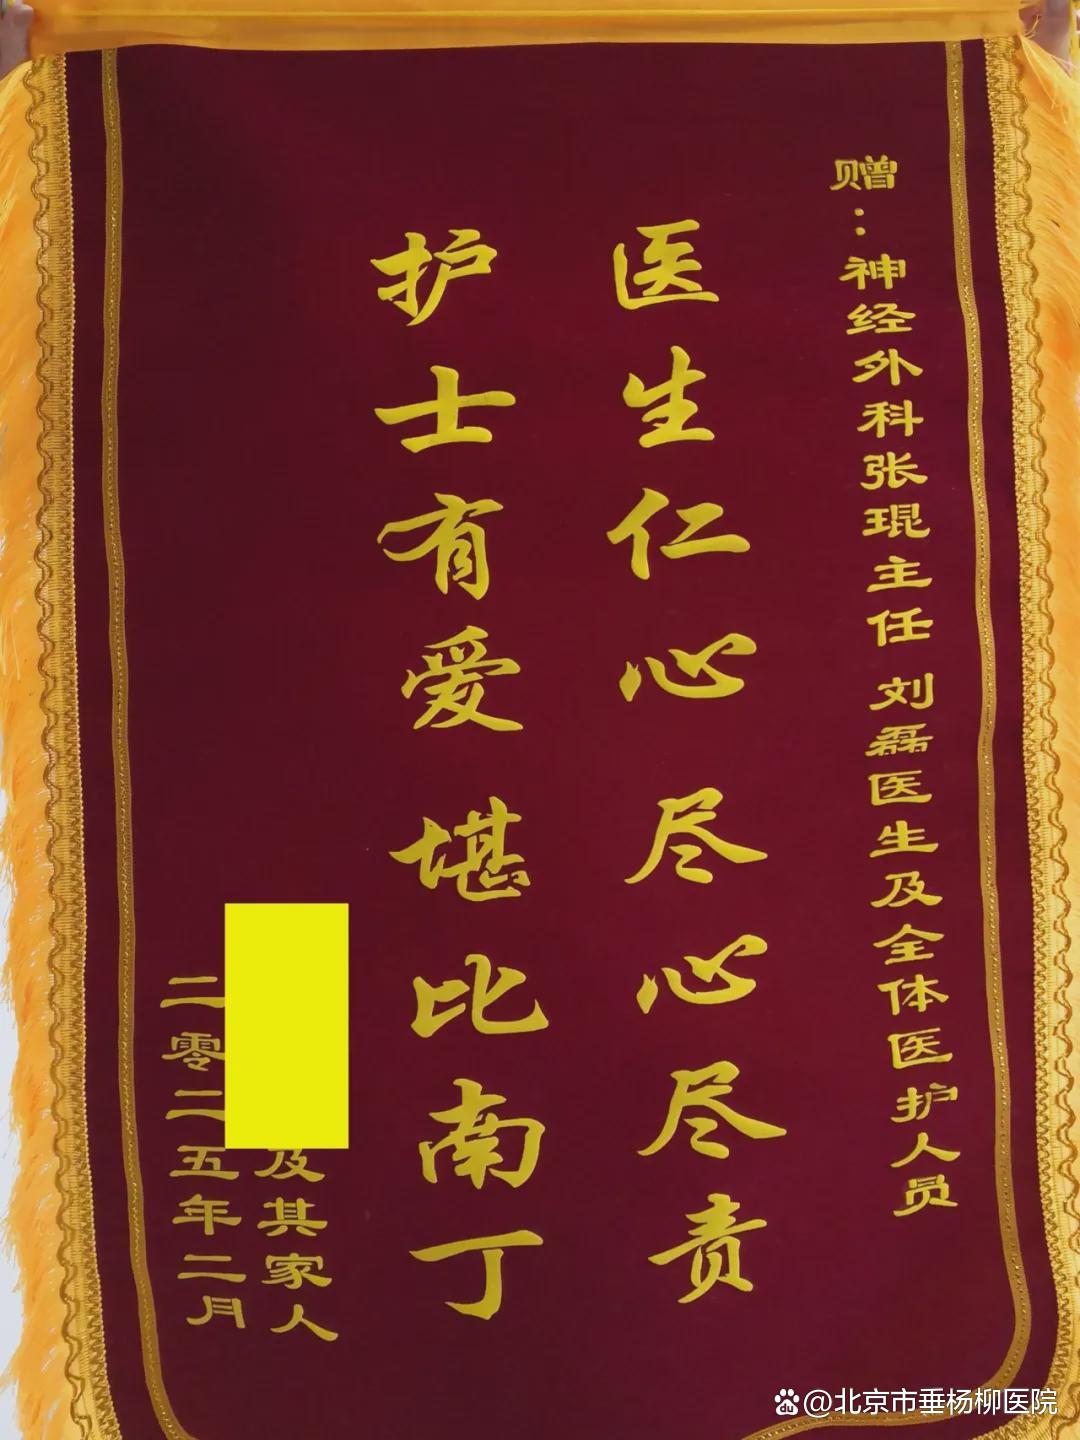 赠：神经外科张琨主任 刘磊医生及全体医护人员
医生仁心尽心尽责
护士有爱堪比南丁
及其家人
二零二五年二月
@北京市垂杨柳医院